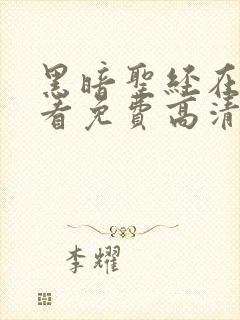 黑暗聖经在
看免費高清
李耀